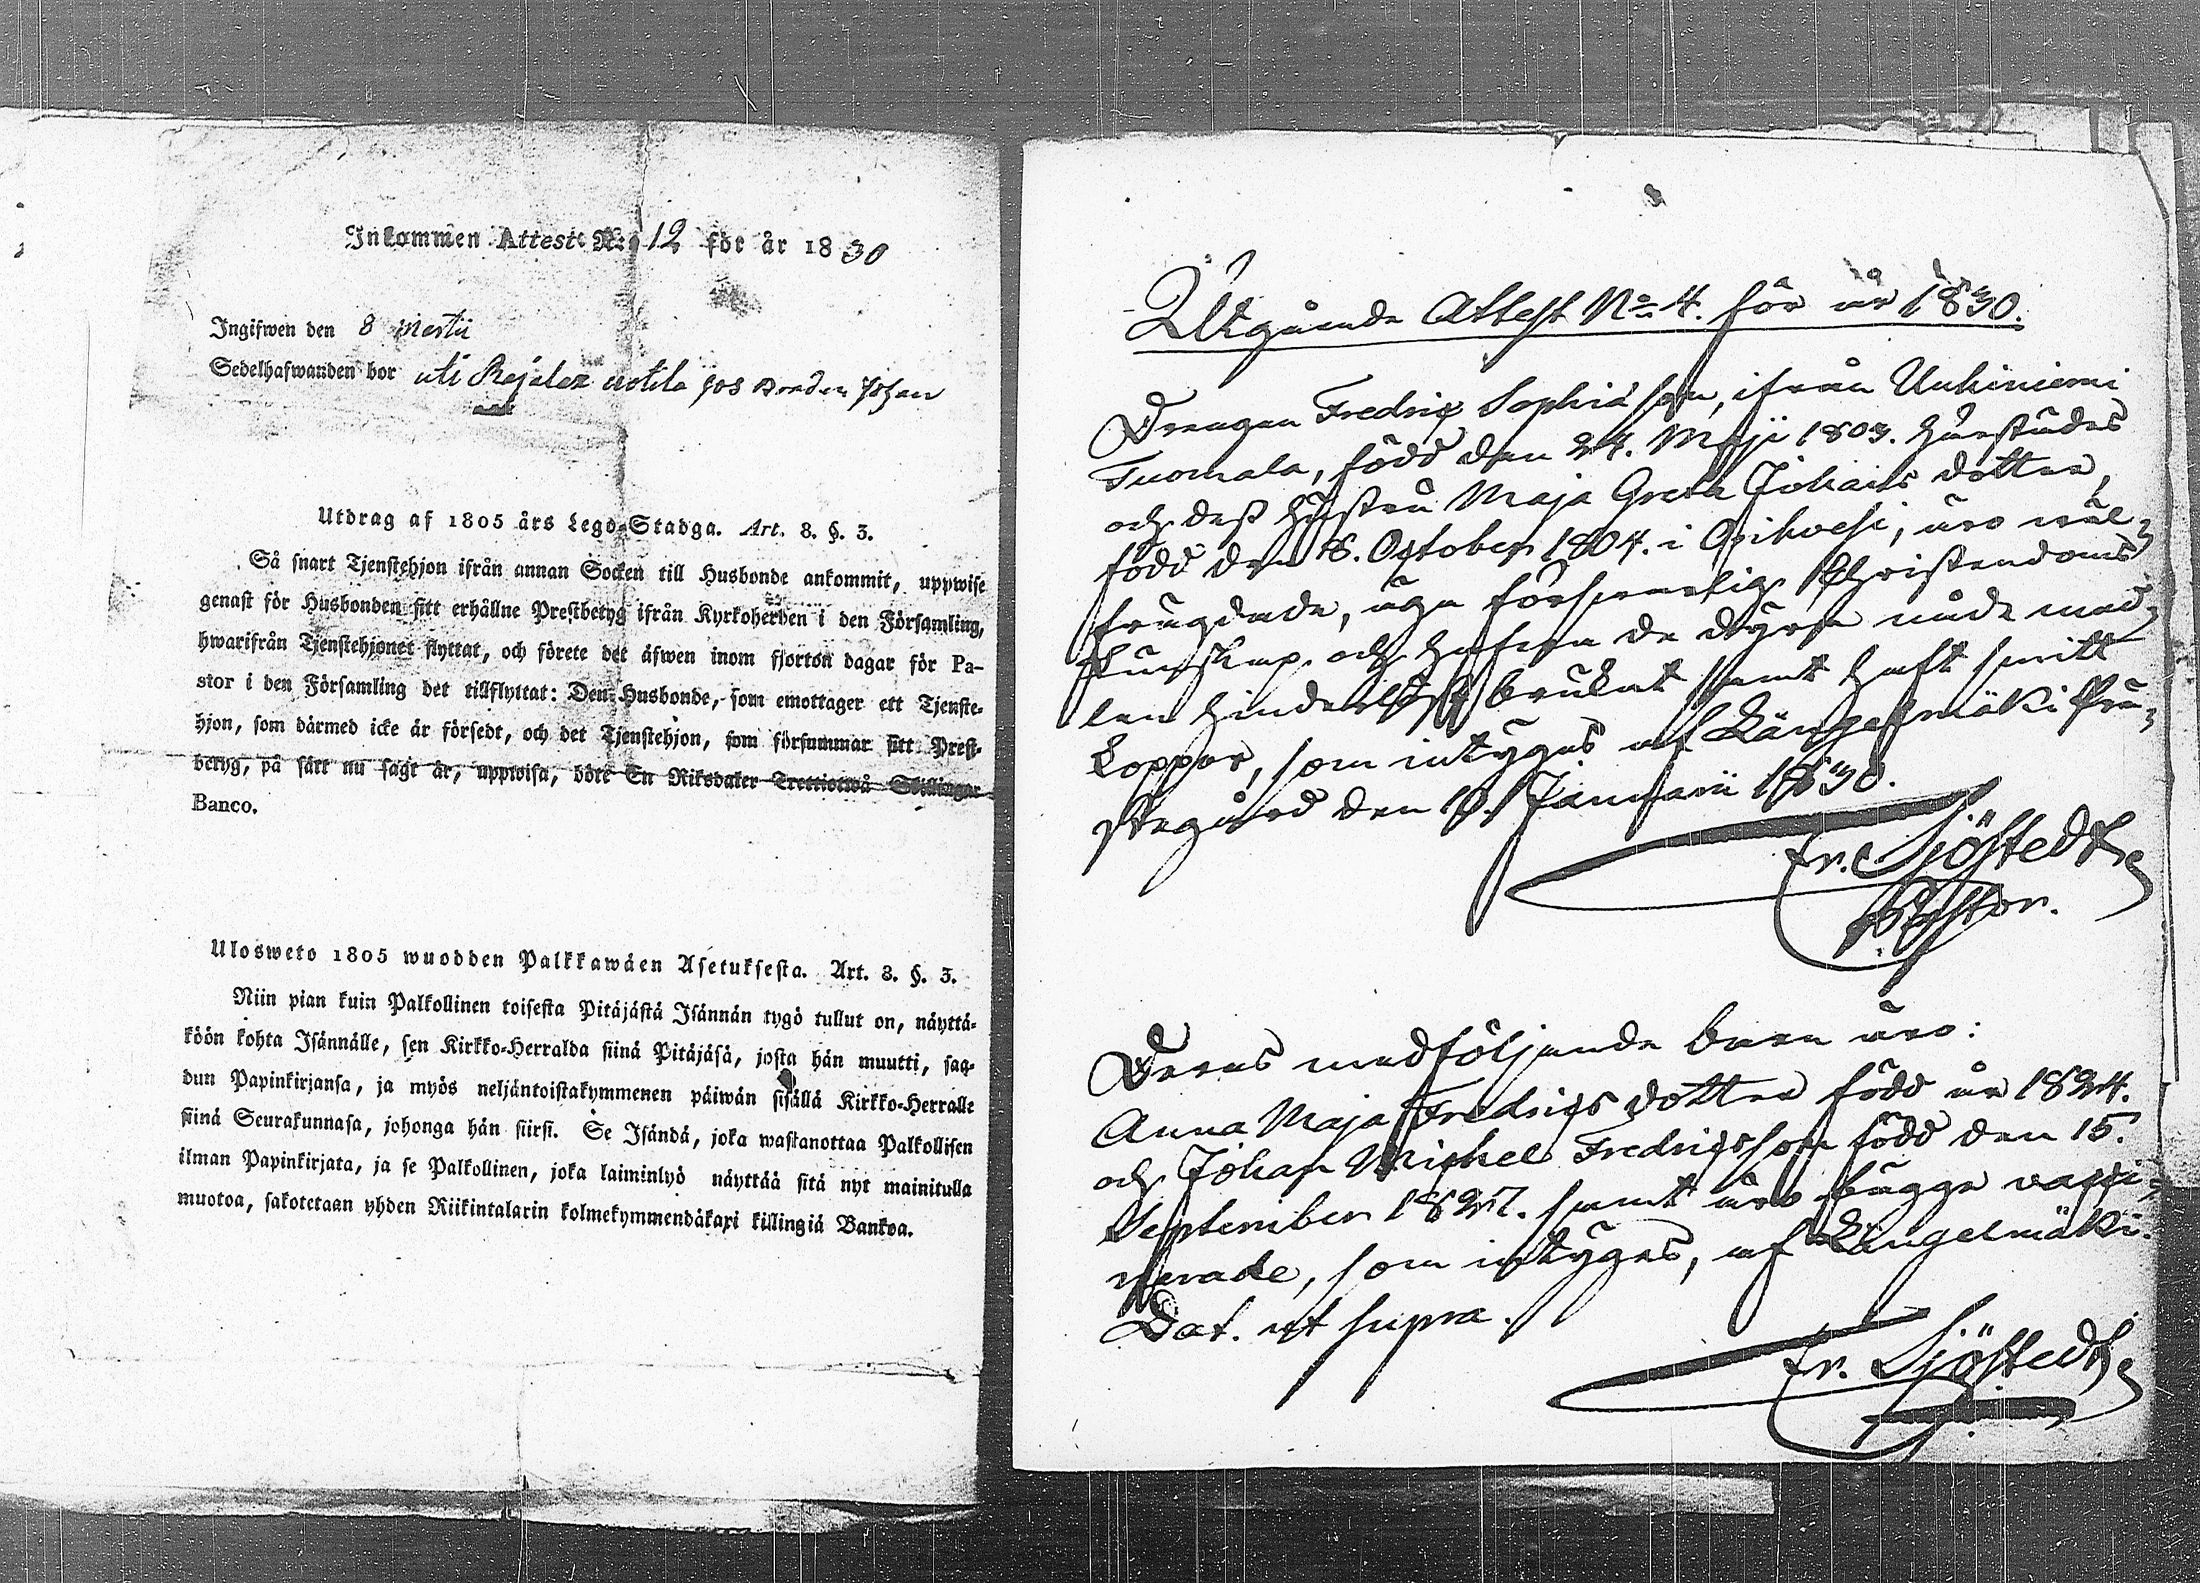 Inkommen Attest N:o 12 för år 1830
Ingifwen den 8 Martii
Sedelhafwanden bor uti Rajalax uotila hos Bonden Johan
Utdrag af 1805 års Lego-Stadga. Art. 8. §. 3.
Så snart Tjenstehjon ifrån annan Socken till Husbonde ankommit, uppwise
genast för Husbonden sitt erhållne Prestbetyg ifrån Kyrkoherden i den Församling,
hwarifrån Tjenstehjonet flyttat, och förete det äfwen inom fjorton dagar för Pa-
stor i den Församling det tillflyttat: Den Husbonde, som emottager ett Tjenste-
hjon, som därmed icke är försedt, och det Tjenstehjon, som försummar sitt Prest-
betyg, på sätt nu sagt är, uppwisa, böte En Riksdaler Trettiotwå Skillingar
Banco.
Ulosweto 1805 wuodden Palkkawäen Asetuksesta. Art. 8. §. 3.
Niin pian kuin Palkollinen toisesta Pitäjästä Isännän tygö tullut on, näyttä-
köön kohta Isännälle, sen Kirkko-Herralda siinä Pitäjäsä, josta hän muutti, saa-
dun Papinkirjansa, ja myös neljäntoistakymmenen päiwän sisällä Kirkko-Herralle
siinä Seurakunnasa, johonga hän siirsi. Se Isändä, joka wastanottaa Palkollisen
ilman Papinkirjata, ja se Palkollinen, joka laiminlyö näyttää sitä nyt mainitulla
muotoa, sakotetaan yhden Riikintalarin kolmekymmendäkaxi killingiä Bankoa.
Utgående Attest No 4. för år 1830.
Drengen Fredric Sophiæ son, ifrån Unkiniemi
Tuomala, född den 24. Maji 1803. härstädes
och dess hustru Maja Greta Johans dotter,
född den 18. October 1804. i Orihvesi, äro väl-
frägdade, äga försvarlig Christendoms
kunskap och hafva de dyra nåde med-
len hinderlöst brukat samt haft smitt
koppor, som intygas af Längelmäki Prä-
stegård den 10. Januarii 1830.
Fr. Sjöstedt
Pastor.
Deras medföljande barn äro:
Anna Maja Fredrics dotter född år 1824.
och Johan Michel Fredricsson född den 15.
September 1827. samt äro bägge vacci-
nerade, som intygas, af Längelmäki.
Dat. ut supra.
Fr. Sjöstedt